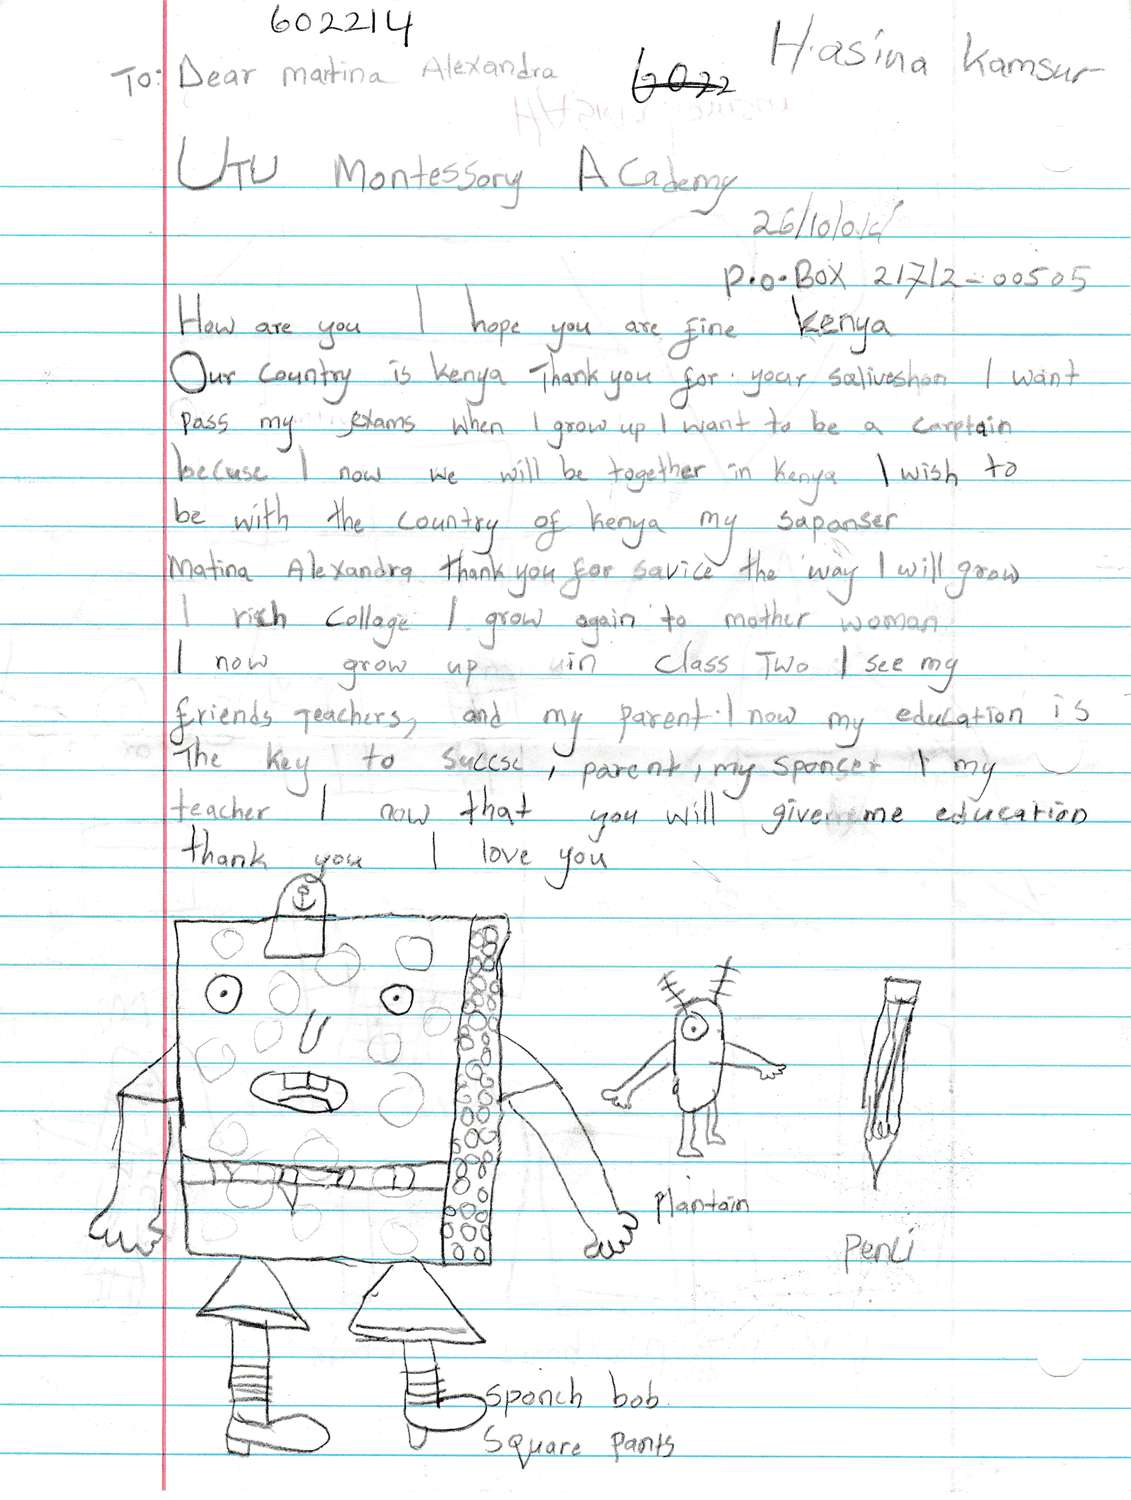 602214
Hasina Kamsur
To: Dear martina Alexandra 6022
UTU Montessory Academy
26/10/
P.O.BOX 21712-00505
How are you I hope you are fine Kenya
Our country is kenya Thank you for your saliveshon I want
pass my exams when I grow up I want to be a carptain
becuse I now we will be together in kenya I wish to
be with the country of kenya my sapanser
Matina Alexandra thank you for savice the way I will grow
I rich Collage I grow again to mother woman
I now grow up in class Two I see my
friends Teachers, and my parent. I now my education is
The key to succsc, parent, my sponcer I my
teacher I now that you will give me education
thank you I love you
Plantain
Penli
Sponch bob
Square pants